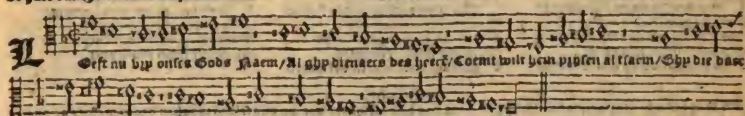 Oeft nu vry onses Gods Naem/Al ghy dienaers des heerē/Coemt wilt hem prysen al tsaem/Ghy die daer